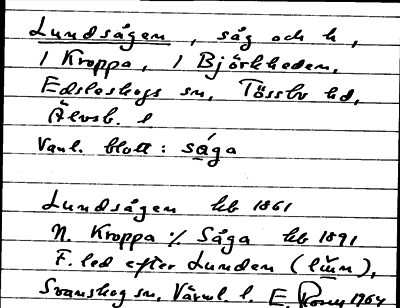 Lundsågen, såg och h,
/ Kroppa, / Björkheden,
Edsleskogs sn, Tössbo hd,
Älvsb. l
Vanl. blott: såga
Lundsågen hb 1861
N. Kroppa % Såga hb 1891
F. led efter Lunden (lu̇n),
Svanskog sn, Värml. l. E. 1964